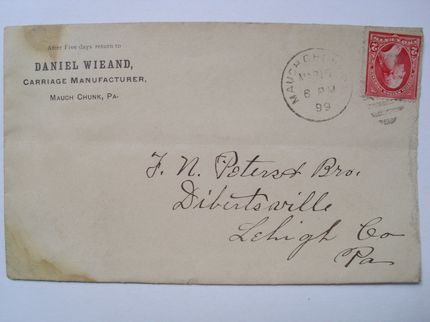 After Five days return to
DANIEL WIEAND,
CARRIAGE MANUFACTURER,
MAUCH CHUNK, PA.
MAUCH CHUNK
6 PM
99
F. N. Peters & Bro.
Dibertsville
Lehigh Co
Pa